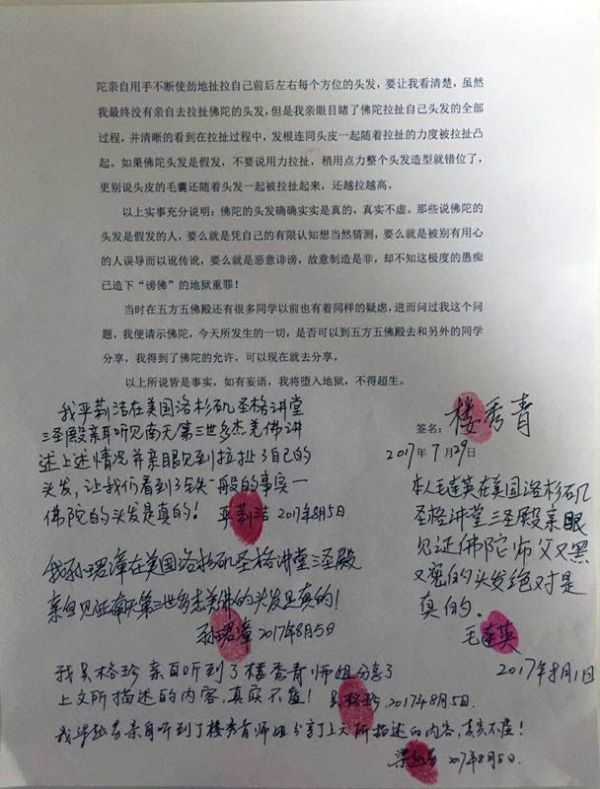 陀亲自用手不断使劲地扯拉自己前后左右每个方位的头发，要让我看清楚，虽然
我最终没有亲自去拉扯佛陀的头发，但是我亲眼目睹了佛陀拉扯自己头发的全部
过程，并清晰的看到在拉扯过程中，发根连同头皮一起随着拉扯的力度被拉扯凸
起。如果佛陀头发是假发，不要说用力拉扯，稍用点力整个头发造型就错位了，
更别说头皮的毛囊还随着头发一起被拉扯起来，还越拉越高。
以上实事充分说明：佛陀的头发确确实实是真的，真实不虚。那些说佛陀的
头发是假发的人，要么就是凭自己的有限认知想当然猜测，要么就是被别有用心
的人误导而以讹传讹，要么就是恶意诽谤，故意制造是非，却不知这极度的愚痴
已造下“谤佛”的地狱重罪！
当时在五方五佛殿还有很多同学以前也有着同样的疑虑，进而问过我这个问
题，我便请示佛陀，今天所发生的一切，是否可以到五方五佛殿去和另外的同学
分享，我得到了佛陀的允许，可以现在就去分享。
以上所说皆是事实，如有妄语，我将堕入地狱，不得超生。
签名：楼秀青
2017年7月29日
我平莉洁在美国洛杉矶圣格讲堂
三圣殿亲耳听见南天第三世多杰羌佛讲
述上述情况并亲眼见到拉扯了自己的
头发，让我们看到了铁一般的事实—
佛陀的头发是真的！ 平莉洁 2017年8月5日
本人毛莲英在美国洛杉矶
圣格讲堂三圣殿亲眼
见证佛陀师父又黑
又密的头发绝对是
真的。
毛莲英
2017年8月1日
我孙珺漳在美国洛杉矶圣格讲堂三圣殿
亲自见证南无第三世多杰羌佛的头发是真的！
孙珺漳 2017年8月5日
我吴格珍亲自听到了楼秀青师姐分享了
上文所描述的内容，真实不虚！吴格珍 2017年8月5日.
我梁 亲自听到了楼秀青师姐分享了上文所描述的内容，真实不虚！
梁 2017年8月5日.